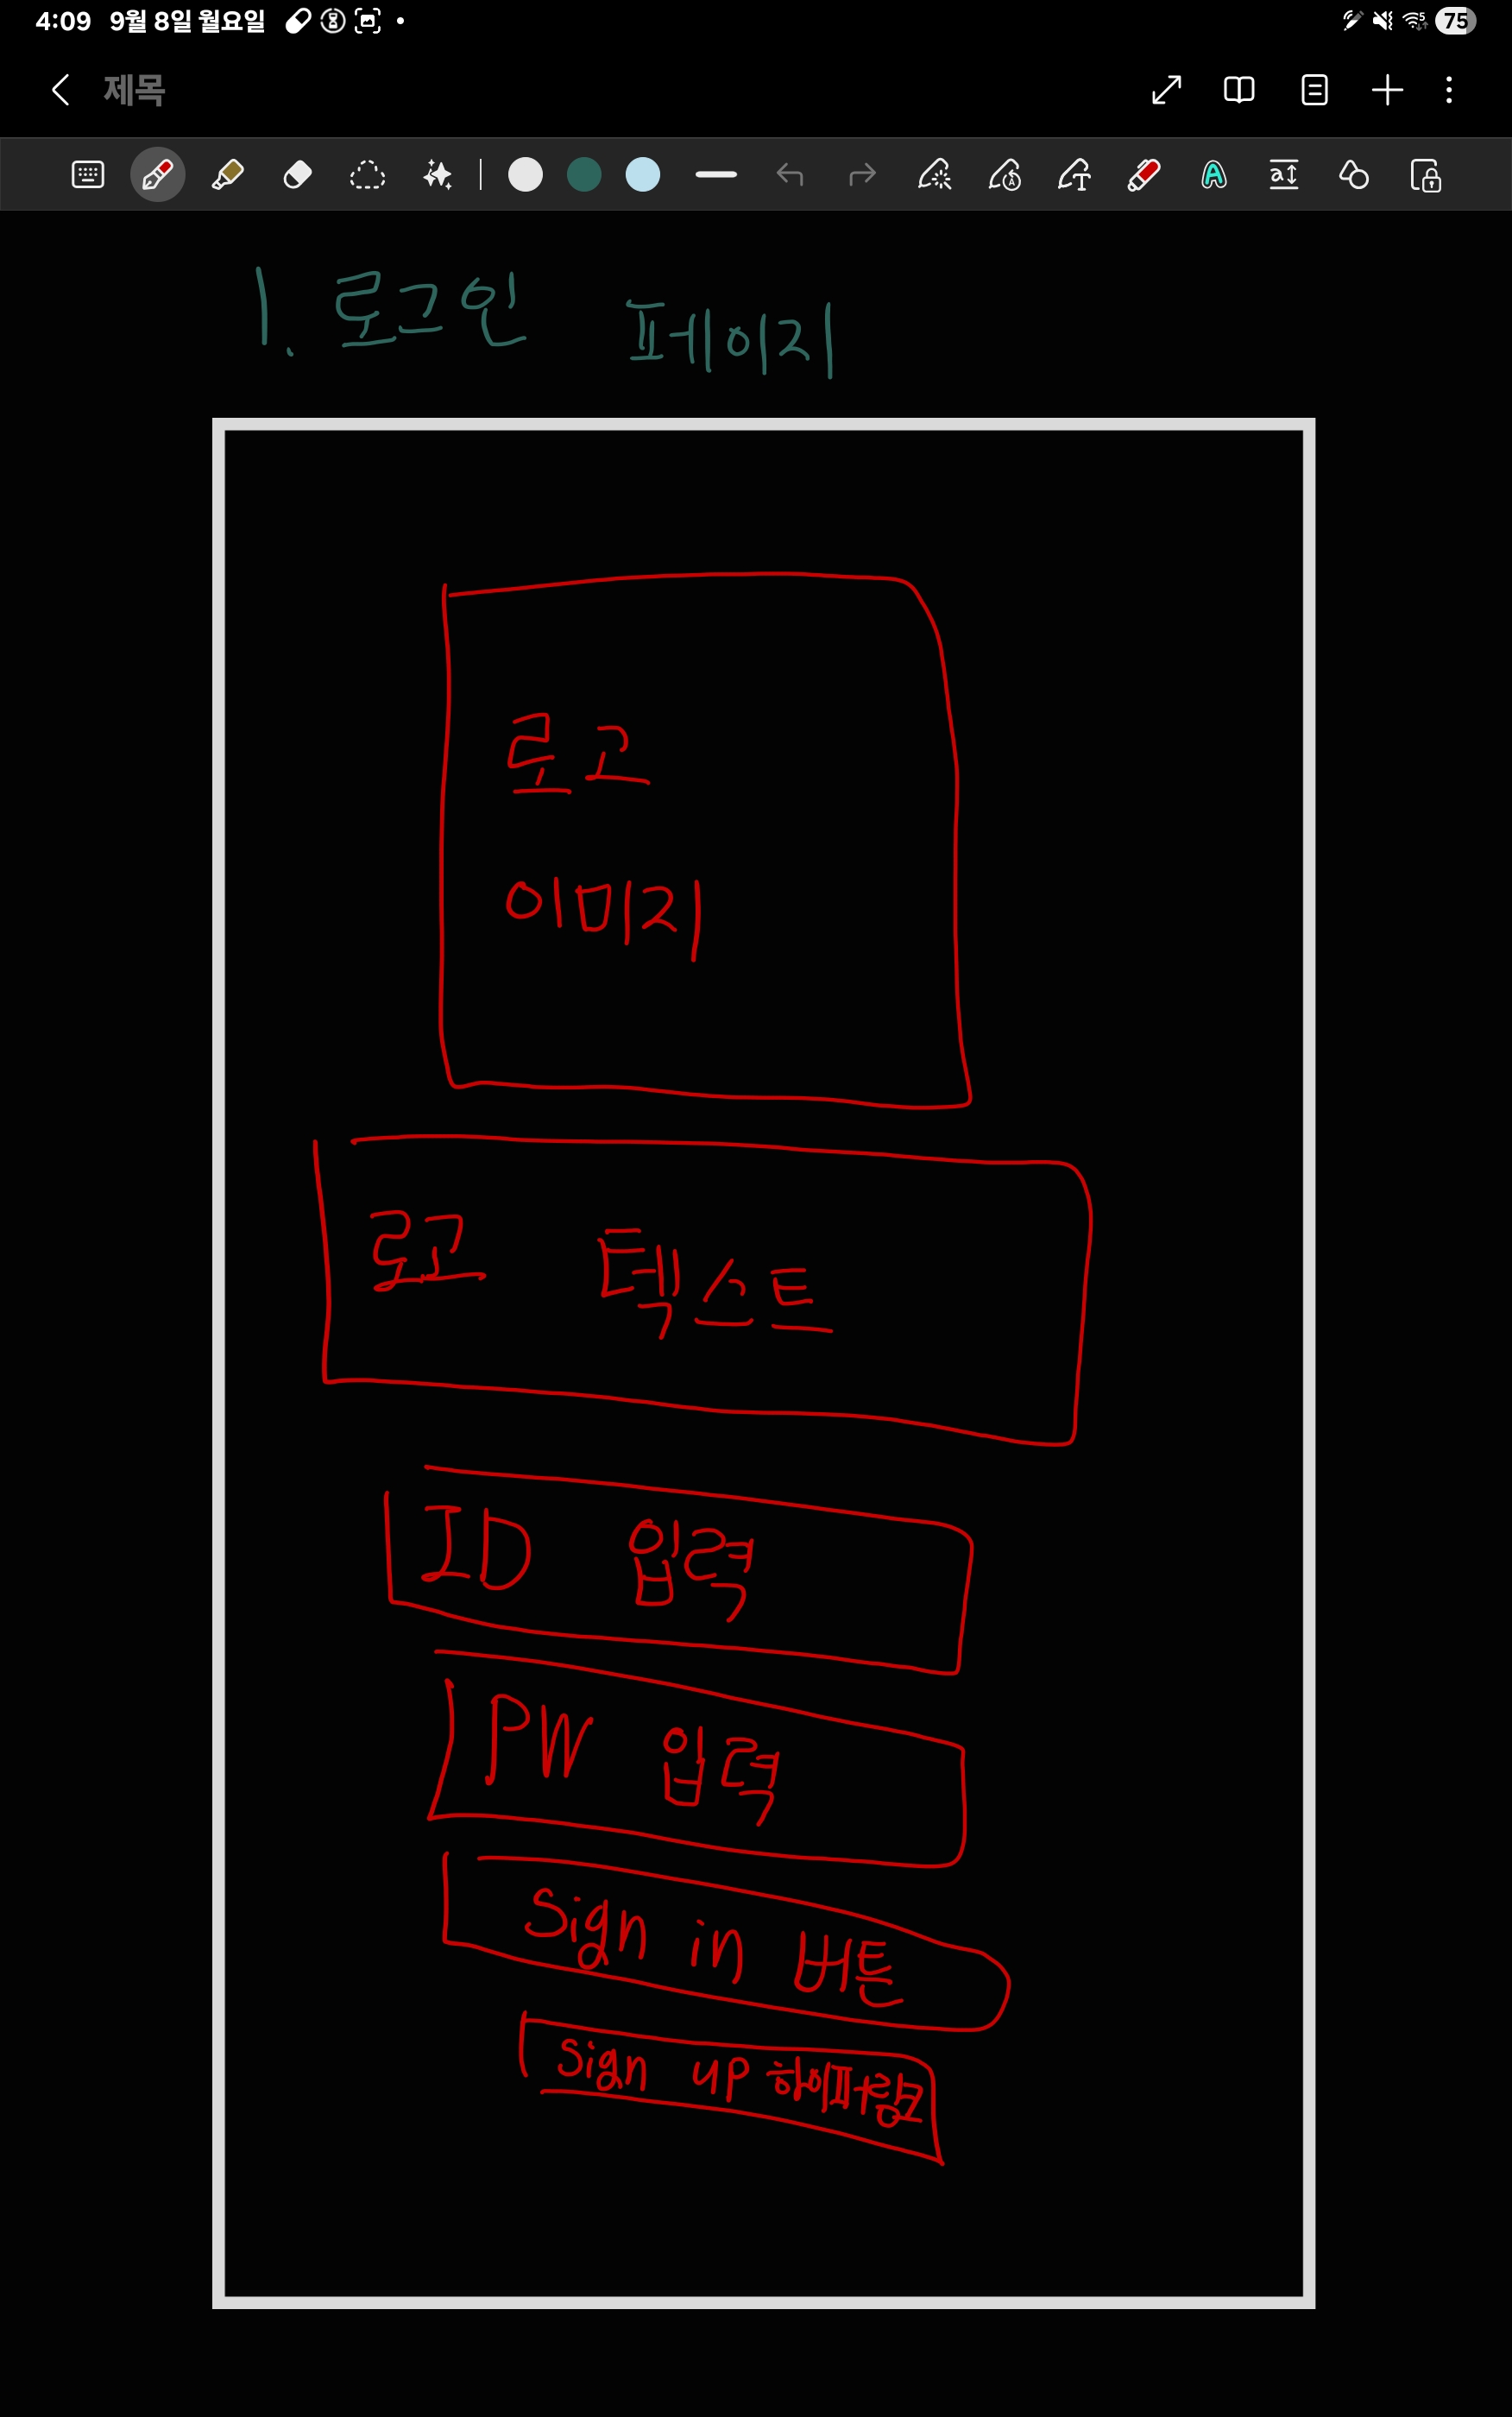 4:09 9월 8일 월요일 75
제목
1. 로그인 페이지
로고
이미지
로고 텍스트
ID 입력
PW 입력
Sign in 버튼
Sign up 하이퍼링크